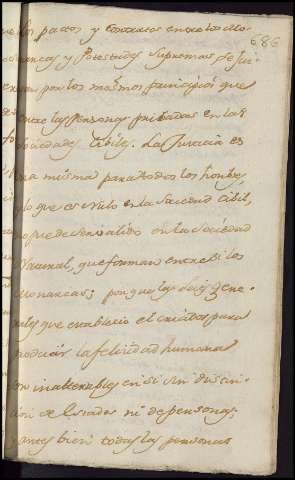 686
los pactos y contratos entre los Mo-
narcas y Potestades Supremas se jui-
por los mismos principios que
entre las Personas privadas en las
Sociedades Cibiles. La Justicia es
una misma para todos los hombres,
y lo que es Nulo en la Sociedad Cibil,
no puede ser valido en la Sociedad
Natural, que forman entre si los
Monarcas; por que las leies gene-
rales que establecio el criador para
producir la felicidad humana
son inalterables en si sin distin-
cion de Estados ni de personas;
y antes bien todas las personas